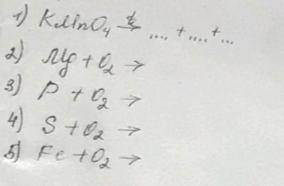 1) KMnO₄ →ᵗ .... + .... + ...
2) Mg + O₂ →
3) P + O₂ →
4) S + O₂ →
5) Fe + O₂ →